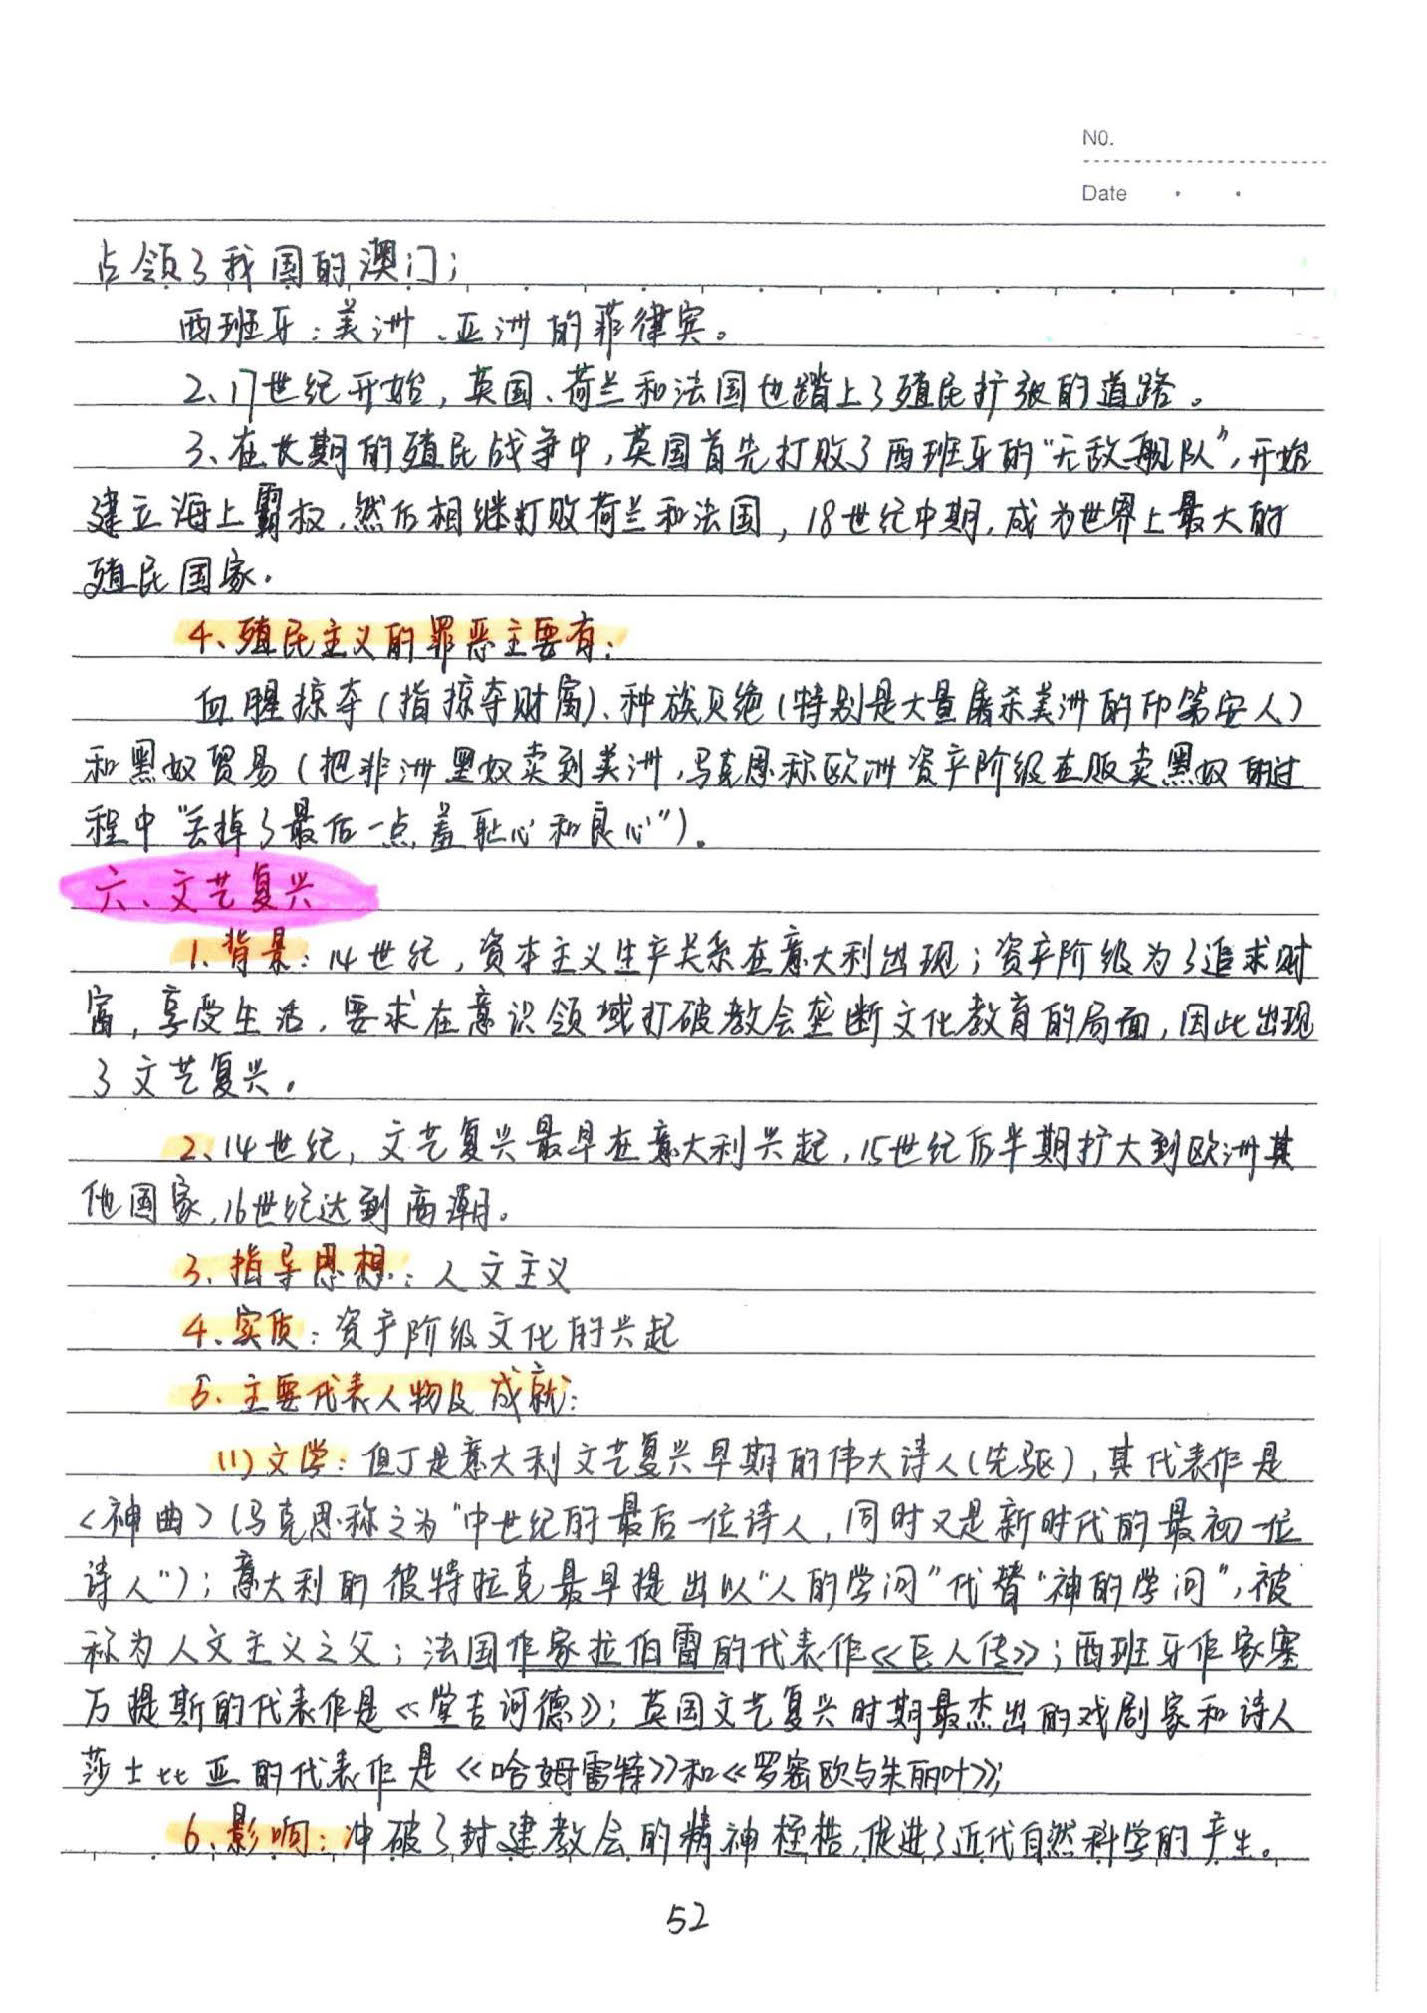 NO.
Date
占领了我国的澳门；
西班牙：美洲、亚洲的菲律宾。
2、17世纪开始，英国、荷兰和法国也踏上了殖民扩张的道路。
3、在长期的殖民战争中，英国首先打败了西班牙的“无敌舰队”，开始
建立海上霸权，然后相继打败荷兰和法国，18世纪中期，成为世界上最大的
殖民国家。
4、殖民主义的罪恶主要有：
血腥掠夺（指掠夺财富）、种族灭绝（特别是大量屠杀美洲的印第安人）
和黑奴贸易（把非洲黑奴卖到美洲，马克思称欧洲资产阶级在贩卖黑奴的过
程中“丢掉了最后一点羞耻心和良心”）。
六、文艺复兴
1、背景：14世纪，资本主义生产关系在意大利出现；资产阶级为了追求财
富，享受生活，要求在意识领域打破教会垄断文化教育的局面，因此出现
了文艺复兴。
2、14世纪，文艺复兴最早在意大利兴起，15世纪后半期扩大到欧洲其
他国家，16世纪达到高潮。
3、指导思想：人文主义
4、实质：资产阶级文化的兴起
5、主要代表人物及成就：
（1）文学：但丁是意大利文艺复兴早期的伟大诗人（先驱），其代表作是
《神曲》（马克思称之为“中世纪的最后一位诗人，同时又是新时代的最初一位
诗人”）；意大利的彼特拉克最早提出以“人的学问”代替“神的学问”，被
称为人文主义之父；法国作家拉伯雷的代表作《巨人传》；西班牙作家塞
万提斯的代表作是《堂吉诃德》；英国文艺复兴时期最杰出的戏剧家和诗人
莎士比亚的代表作是《哈姆雷特》和《罗密欧与朱丽叶》；
6、影响：冲破了封建教会的精神桎梏，促进了近代自然科学的产生。
52